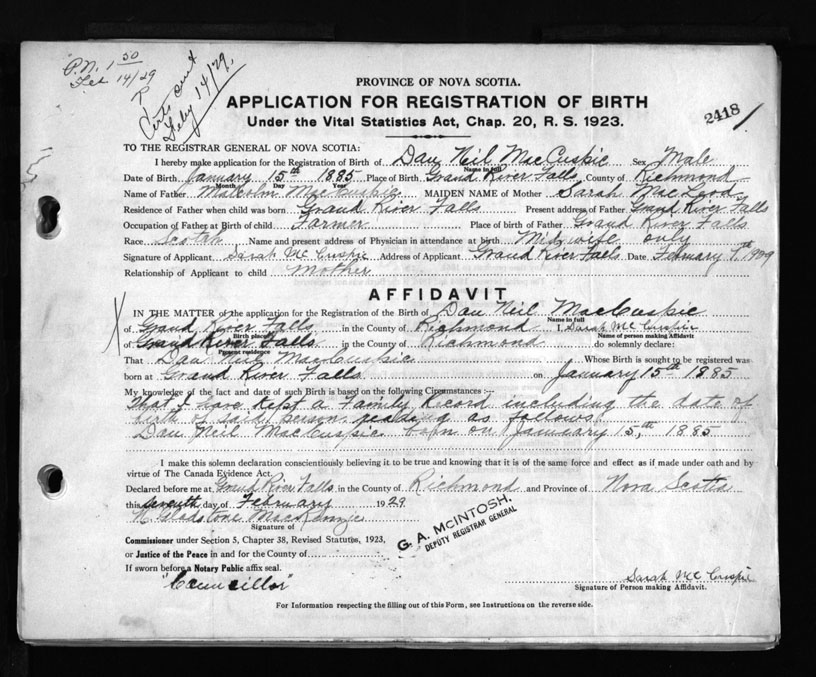 P.N. 1 50
Feb 14/29
Certs sent
Feby 14/29.
PROVINCE OF NOVA SCOTIA.
APPLICATION FOR REGISTRATION OF BIRTH
Under the Vital Statistics Act, Chap. 20, R. S. 1923.
2418
TO THE REGISTRAR GENERAL OF NOVA SCOTIA:
I hereby make application for the Registration of Birth of Dan Neil MacCuspic Sex Male
Name in full
Date of Birth January 15th 1885 Place of Birth Grand River Falls, County of Richmond
Month Day Year
Name of Father Malcolm MacCuspic MAIDEN NAME of Mother Sarah MacLeod
Residence of Father when child was born Grand River Falls Present address of Father Grand River Falls
Occupation of Father at Birth of child Farmer Place of birth of Father Grand River Falls
Race Scotch Name and present address of Physician in attendance at birth Midwife only
Signature of Applicant Sarah McCuspic Address of Applicant Grand River Falls Date February
Relationship of Applicant to child Mother
AFFIDAVIT
IN THE MATTER of the application for the Registration of the Birth of Dan Neil MacCuspic
Name in full
of Grand River Falls in the County of Richmond I, Sarah McCuspic
Birth place Name of person making Affidavit
of Grand River Falls in the County of Richmond do solemnly declare:
Present residence
That Dan Neil MacCuspic Whose Birth is sought to be registered was
born at Grand River Falls on January 15th 1885
My knowledge of the fact and date of such Birth is based on the following Circumstances :—
That I have kept a Family Record including the date of
birth of said person reading as follows
Dan Neil MacCuspic born on January 15,th 1885
I make this solemn declaration conscientiously believing it to be true and knowing that it is of the same force and effect as if made under oath and by
virtue of The Canada Evidence Act.
Declared before me at Grand River Falls in the County of Richmond and Province of Nova Scotia
this seventh day of February 1929
Gladstone MacKenzie
Signature of
Commissioner under Section 5, Chapter 38, Revised Statutes, 1923,
or Justice of the Peace in and for the County of
If sworn before a Notary Public affix seal.
"Councillor"
G. A. McINTOSH.
DEPUTY REGISTRAR GENERAL
Sarah McCuspic
Signature of Person making Affidavit.
For Information respecting the filling out of this Form, see Instructions on the reverse side.